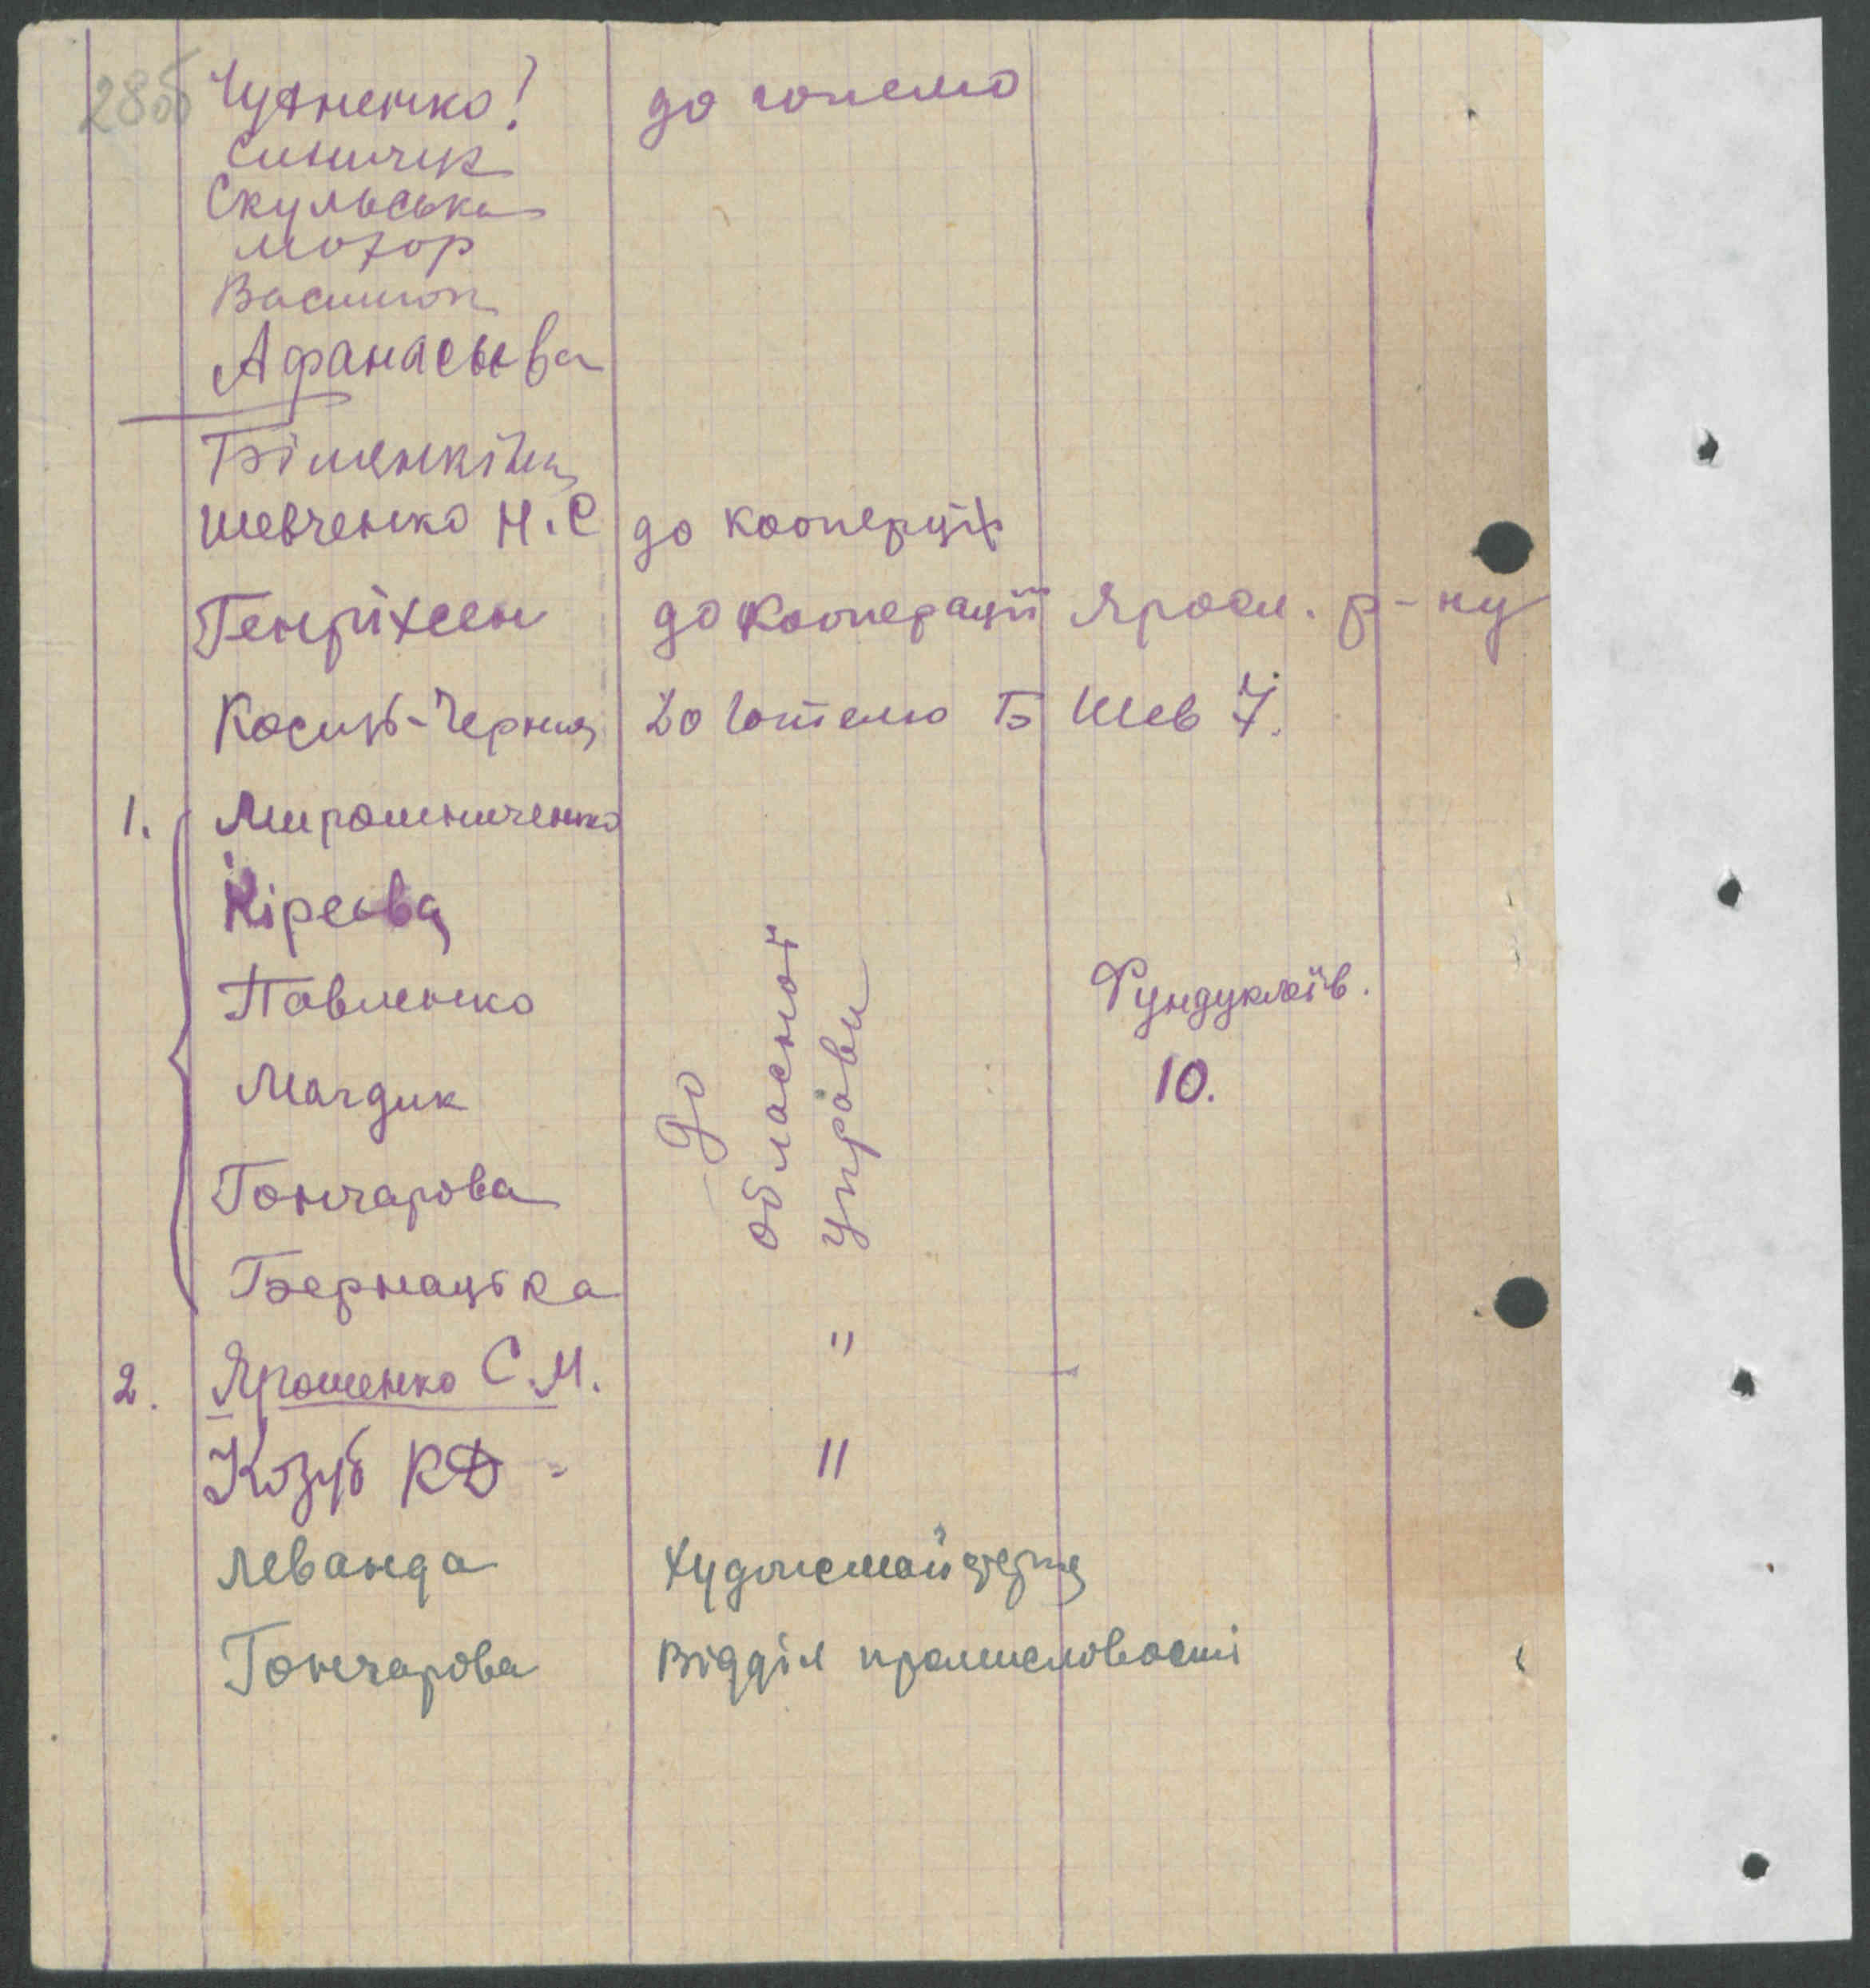 28об
Чуяненко! до готелю
Синичук
Скульська
Мохор
Василюк
Афанасьєва
Білянкіна
Шевченко Н.С до кооперції
Генріхсен до кооперації Яросл. р-ну
Косиць-Черня до готелю Б Шев 7.
1. Мирошниченко
Кіреєва
Павленко
Магдик
Гончарова
Бернацька
До
обласної
управи
Фундуклеїв.
10.
2. Ярошенко С.М. "
Козуб КД - "
Леванда Художмайстерня
Гончарова Відділ промисловості